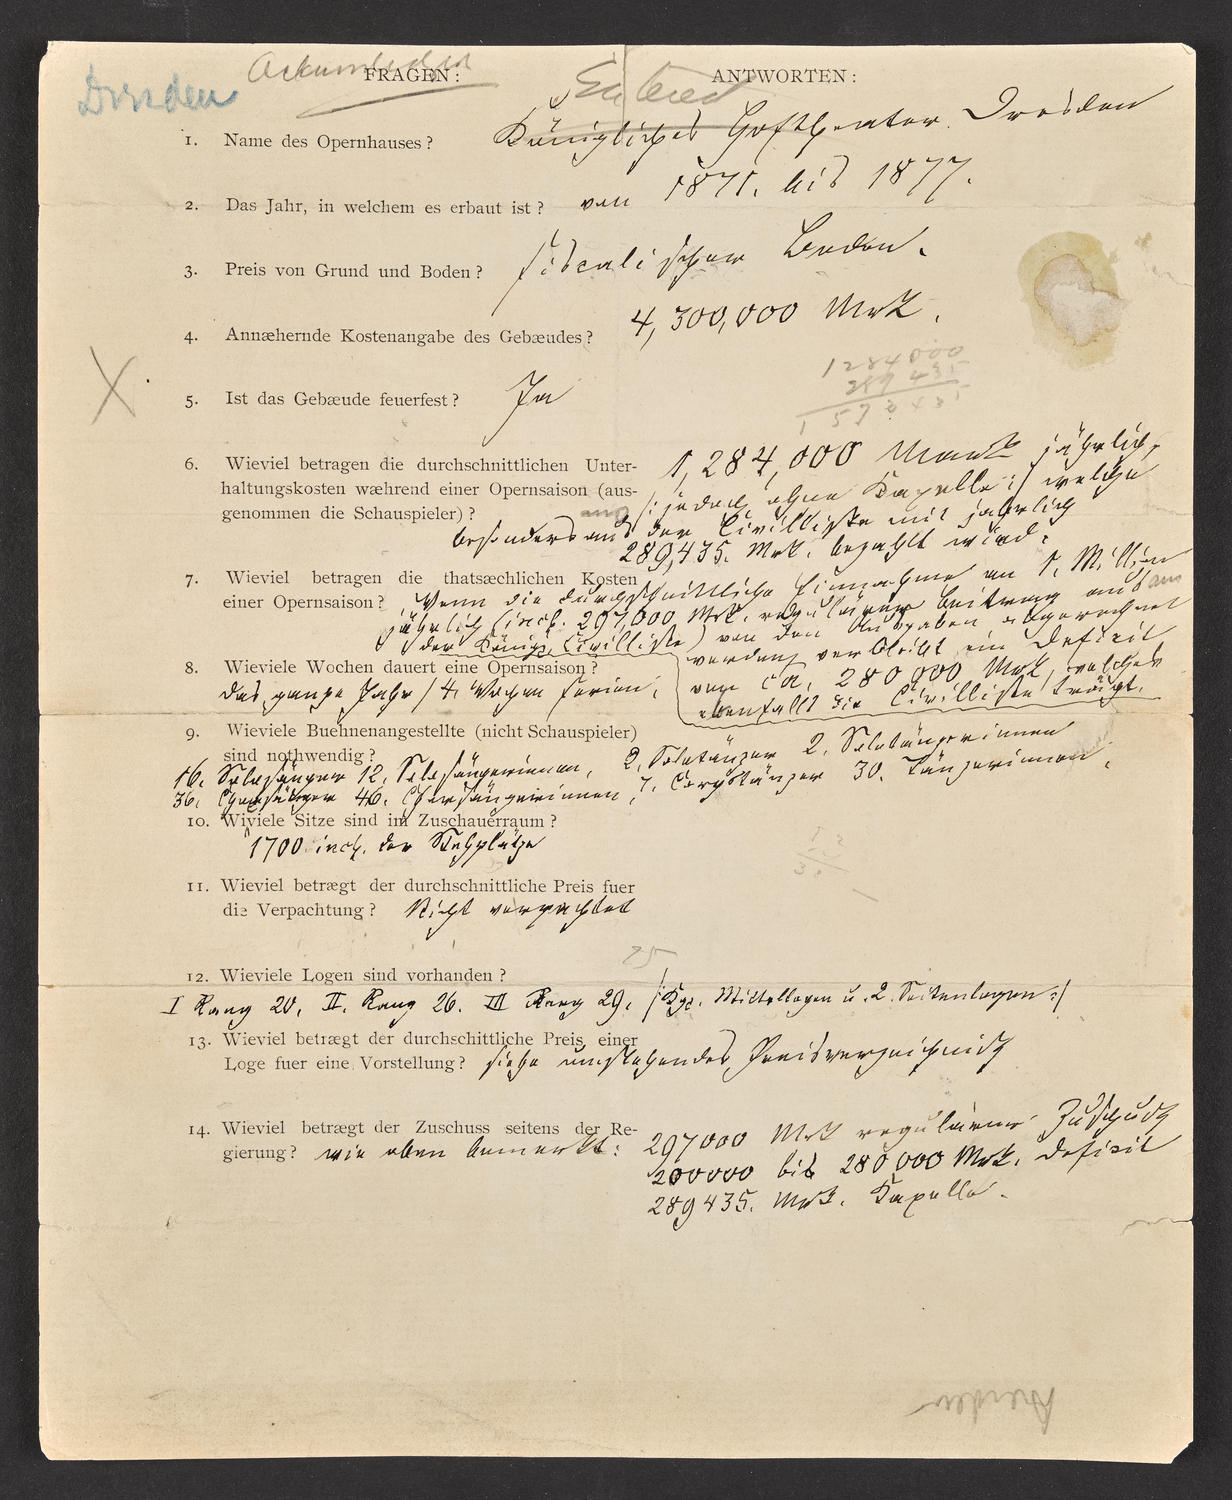 Dresden
FRAGEN:
Entered
ANTWORTEN:
1. Name des Opernhauses?
Königliches Hoftheater Dresden
2. Das Jahr, in welchem es erbaut ist?
von 1871. bis 1877.
3. Preis von Grund und Boden?
fiscalischer Boden.
4. Annæhernde Kostenangabe des Gebæudes?
4,300,000 Mrk.
1284000
289 435
1 573 435
5. Ist das Gebæude feuerfest?
Ja
6. Wieviel betragen die durchschnittlichen Unter-
haltungskosten wæhrend einer Opernsaison (aus-
genommen die Schauspieler)?
1,284,000 Mark jährlich,
/: jedoch ohne Kapelle :/ welche
besonders aus der Civilliste mit jährlich
289,435. Mrk. bezahlt wird.
7. Wieviel betragen die thatsæchlichen Kosten
einer Opernsaison?
Wenn die durchschnittliche Einnahme an 1. Million
jährlich (incl. 297,000 Mrk. regulärer Beitrag aus
der Königl. Civilliste) von den Ausgaben abgerechnet
werden, verbleibt ein Deficit
von ca. 280000 Mrk, welches
ebenfalls die Civilliste trägt.
8. Wieviele Wochen dauert eine Opernsaison?
das ganze Jahr / 4. Wochen Ferien.
9. Wieviele Buehnenangestellte (nicht Schauspieler)
sind nothwendig?
16. Solosänger 12. Solosängerinnen, 2. Solotänzer 2. Solotänzerinnen
36. Chorsänger 46. Chorsängerinnen, 7. Corpstänzer 30. Tänzerinnen.
10. Wiviele Sitze sind im Zuschauerraum?
1700 incl. der Stehplätze
11. Wieviel betrægt der durchschnittliche Preis fuer
die Verpachtung?
Nicht verpachtet
75
12. Wieviele Logen sind vorhanden?
I Rang 20, II. Rang 26. III Rang 29. /: Kgl. Mittellogen u. 2. Seitenlogen :/
13. Wieviel betrægt der durchschittliche Preis einer
Loge fuer eine Vorstellung?
siehe umstehendes Preisverzeichniß
14. Wieviel betrægt der Zuschuss seitens der Re-
gierung?
wie oben bemerkt:
297000 Mrk regulärer Zuschuß
200000 bis 280,000 Mrk. Deficit
289435. Mrk. Kapelle.
Dresden